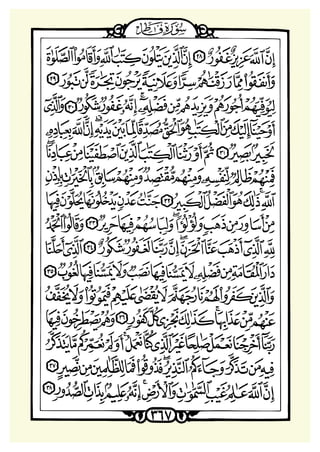 سُورَةُ فَاطِر
إِنَّ ٱللَّهَ عَزِيزٌ غَفُورٌ ٢٨ إِنَّ ٱلَّذِينَ يَتْلُونَ كِتَٰبَ ٱللَّهِ وَأَقَامُوا۟ ٱلصَّلَوٰةَ
وَأَنفَقُوا۟ مِمَّا رَزَقْنَٰهُمْ سِرًّا وَعَلَانِيَةً يَرْجُونَ تِجَٰرَةً لَّن تَبُورَ ٢٩
لِيُوَفِّيَهُمْ أُجُورَهُمْ وَيَزِيدَهُم مِّن فَضْلِهِۦٓ إِنَّهُۥ غَفُورٌ شَكُورٌ ٣٠ وَٱلَّذِىٓ
أَوْحَيْنَآ إِلَيْكَ مِنَ ٱلْكِتَٰبِ هُوَ ٱلْحَقُّ مُصَدِّقًا لِّمَا بَيْنَ يَدَيْهِ إِنَّ ٱللَّهَ بِعِبَادِهِۦ
لَخَبِيرٌۢ بَصِيرٌ ٣١ ثُمَّ أَوْرَثْنَا ٱلْكِتَٰبَ ٱلَّذِينَ ٱصْطَفَيْنَا مِنْ عِبَادِنَا
فَمِنْهُمْ ظَالِمٌ لِّنَفْسِهِۦ وَمِنْهُم مُّقْتَصِدٌ وَمِنْهُمْ سَابِقٌۢ بِٱلْخَيْرَٰتِ بِإِذْنِ
ٱللَّهِ ذَٰلِكَ هُوَ ٱلْفَضْلُ ٱلْكَبِيرُ ٣٢ جَنَّٰتُ عَدْنٍ يَدْخُلُونَهَا يُحَلَّوْنَ فِيهَا
مِنْ أَسَاوِرَ مِن ذَهَبٍ وَلُؤْلُؤًا وَلِبَاسُهُمْ فِيهَا حَرِيرٌ ٣٣ وَقَالُوا۟ ٱلْحَمْدُ
لِلَّهِ ٱلَّذِىٓ أَذْهَبَ عَنَّا ٱلْحَزَنَ إِنَّ رَبَّنَا لَغَفُورٌ شَكُورٌ ٣٤ ٱلَّذِىٓ أَحَلَّنَا
دَارَ ٱلْمُقَامَةِ مِن فَضْلِهِۦ لَا يَمَسُّنَا فِيهَا نَصَبٌ وَلَا يَمَسُّنَا فِيهَا لُغُوبٌ ٣٥
وَٱلَّذِينَ كَفَرُوا۟ لَهُمْ نَارُ جَهَنَّمَ لَا يُقْضَىٰ عَلَيْهِمْ فَيَمُوتُوا۟ وَلَا يُخَفَّفُ
عَنْهُم مِّنْ عَذَابِهَا كَذَٰلِكَ نَجْزِى كُلَّ كَفُورٍ ٣٦ وَهُمْ يَصْطَرِخُونَ فِيهَا
رَبَّنَآ أَخْرِجْنَا نَعْمَلْ صَٰلِحًا غَيْرَ ٱلَّذِى كُنَّا نَعْمَلُ أَوَلَمْ نُعَمِّرْكُم مَّا يَتَذَكَّرُ
فِيهِ مَن تَذَكَّرَ وَجَآءَكُمُ ٱلنَّذِيرُ فَذُوقُوا۟ فَمَا لِلظَّٰلِمِينَ مِن نَّصِيرٍ ٣٧
إِنَّ ٱللَّهَ عَٰلِمُ غَيْبِ ٱلسَّمَٰوَٰتِ وَٱلْأَرْضِ إِنَّهُۥ عَلِيمٌۢ بِذَاتِ ٱلصُّدُورِ ٣٨
٣٦٧